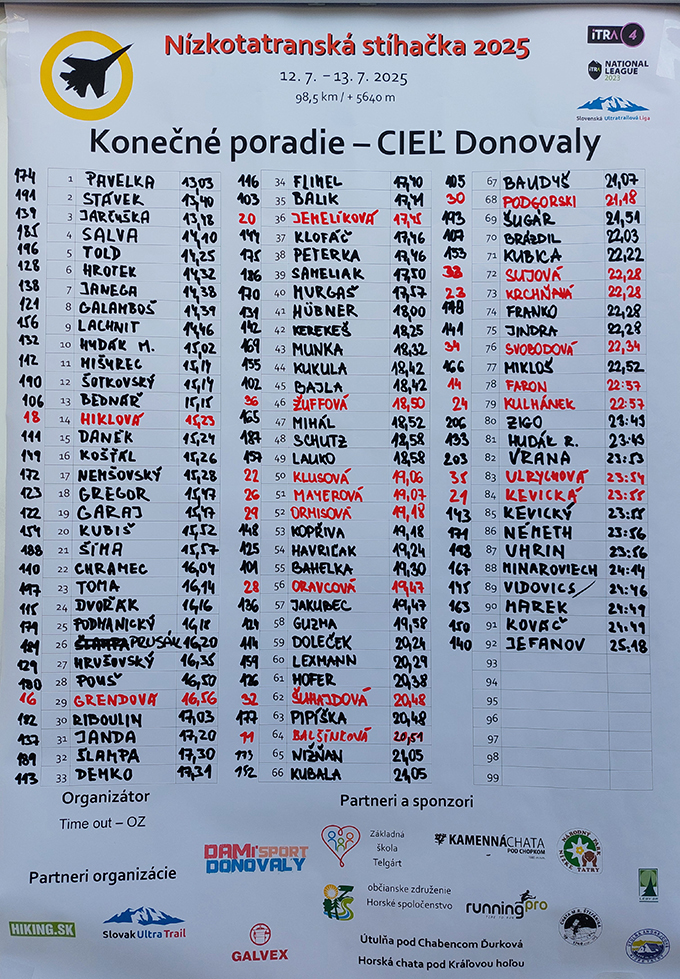 Nízkotatranská stíhačka 2025
12. 7. – 13. 7. 2025
98,5 km / + 5640 m
iTRA 4
iTRA NATIONAL LEAGUE 2023
Slovenská Ultratrailová Liga
Konečné poradie – CIEĽ Donovaly
174 1 PAVELKA 13,03
191 2 STÁVEK 13,40
139 3 JARČUŠKA 13,48
185 4 SALVA 14,10
196 5 TOLD 14,25
128 6 HROTEK 14,32
138 7 JANEGA 14,38
121 8 GALAMBOŠ 14,39
156 9 LACHNIT 14,46
132 10 HUDÁK M. 15,02
112 11 MIŠUREC 15,14
190 12 ŠOTKOVSKÝ 15,14
106 13 BEDNÁŘ 15,15
18 14 HIKLOVÁ 15,23
111 15 DANĚK 15,24
149 16 KOŠŤÁL 15,26
172 17 NEMŠOVSKÝ 15,28
123 18 GREGOR 15,47
122 19 GARAJ 15,47
154 20 KUBIŠ 15,52
188 21 ŠÍMA 15,57
110 22 CHRAMEC 16,04
197 23 TOMA 16,14
115 24 DVOŘÁK 16,16
179 25 PODMANICKÝ 16,18
181 26 PRUSÁK 16,20
129 27 HRUŠOVSKÝ 16,35
180 28 POUŠ 16,50
16 29 GRENDOVÁ 16,56
182 30 RIBOULIN 17,03
137 31 JANDA 17,20
189 32 SLAMPA 17,30
113 33 DEMKO 17,31
116 34 FLIMEL 17,40
103 35 BALIK 17,41
20 36 JEMELÍKOVÁ 17,45
144 37 KLOFÁČ 17,46
175 38 PETERKA 17,46
186 39 SAMELIAK 17,50
170 40 MURGAŠ 17,57
131 41 HÜBNER 18,00
142 42 KEREKEŠ 18,25
169 43 MUNKA 18,32
155 44 KUKULA 18,42
102 45 BAJLA 18,42
36 46 ŽUFFOVÁ 18,50
165 47 MIHÁL 18,52
187 48 SCHUTZ 18,58
157 49 LAUKO 18,58
22 50 KLUSOVÁ 19,06
26 51 MAYEROVÁ 19,07
29 52 ORMISOVÁ 19,18
148 53 KOPŘIVA 19,18
125 54 HAVRIČAK 19,24
101 55 BAHELKA 19,30
28 56 ORAVCOVÁ 19,47
136 57 JAKUBEC 19,47
124 58 GUZMA 19,58
114 59 DOLEČEK 20,24
159 60 LEXMANN 20,29
126 61 HOFER 20,38
32 62 ŠUHAJDOVÁ 20,48
177 63 PIPÍŠKA 20,48
11 64 BALŠÍNKOVÁ 20,51
173 65 NIŽŇAN 21,05
152 66 KUBALA 21,05
105 67 BAUDYŠ 21,07
30 68 PODGORSKI 21,18
193 69 ŠUGÁR 21,51
107 70 BRÁZDIL 22,03
153 71 KUBICA 22,22
33 72 SUJOVÁ 22,28
23 73 KRCHŇAVÁ 22,28
118 74 FRANKO 22,28
141 75 JINDRA 22,28
34 76 SVOBODOVÁ 22,34
166 77 MIKLOŠ 22,52
14 78 FARON 22:57
24 79 KULHÁNEK 22:57
206 80 ZIGO 23:49
133 81 HUDÁK R. 23:49
203 82 VRANA 23:53
35 83 ULRYCHOVÁ 23:54
21 84 KEVICKÁ 23:55
143 85 KEVICKÝ 23:55
171 86 NÉMETH 23:56
198 87 UHRIN 23:56
167 88 MINAROVIECH 24:14
145 89 VIDOVICS 24:46
163 90 MAREK 24:49
150 91 KOVÁČ 24:49
140 92 JEFANOV 25:18
93
94
95
96
97
98
99
Organizátor
Time out – OZ
Partneri organizácie
HIKING.SK
Slovak Ultra Trail
Partneri a sponzori
DAMI'SPORT DONOVALY
Základná škola Telgárt
KAMENNÁ CHATA
POD CHOPKOM
NÁRODNÝ PARK NÍZKE TATRY
občianske združenie
Horské spoločenstvo
runningpro
GALVEX
Útulňa pod Chabencom Ďurková
Horská chata pod Kráľovou hoľou